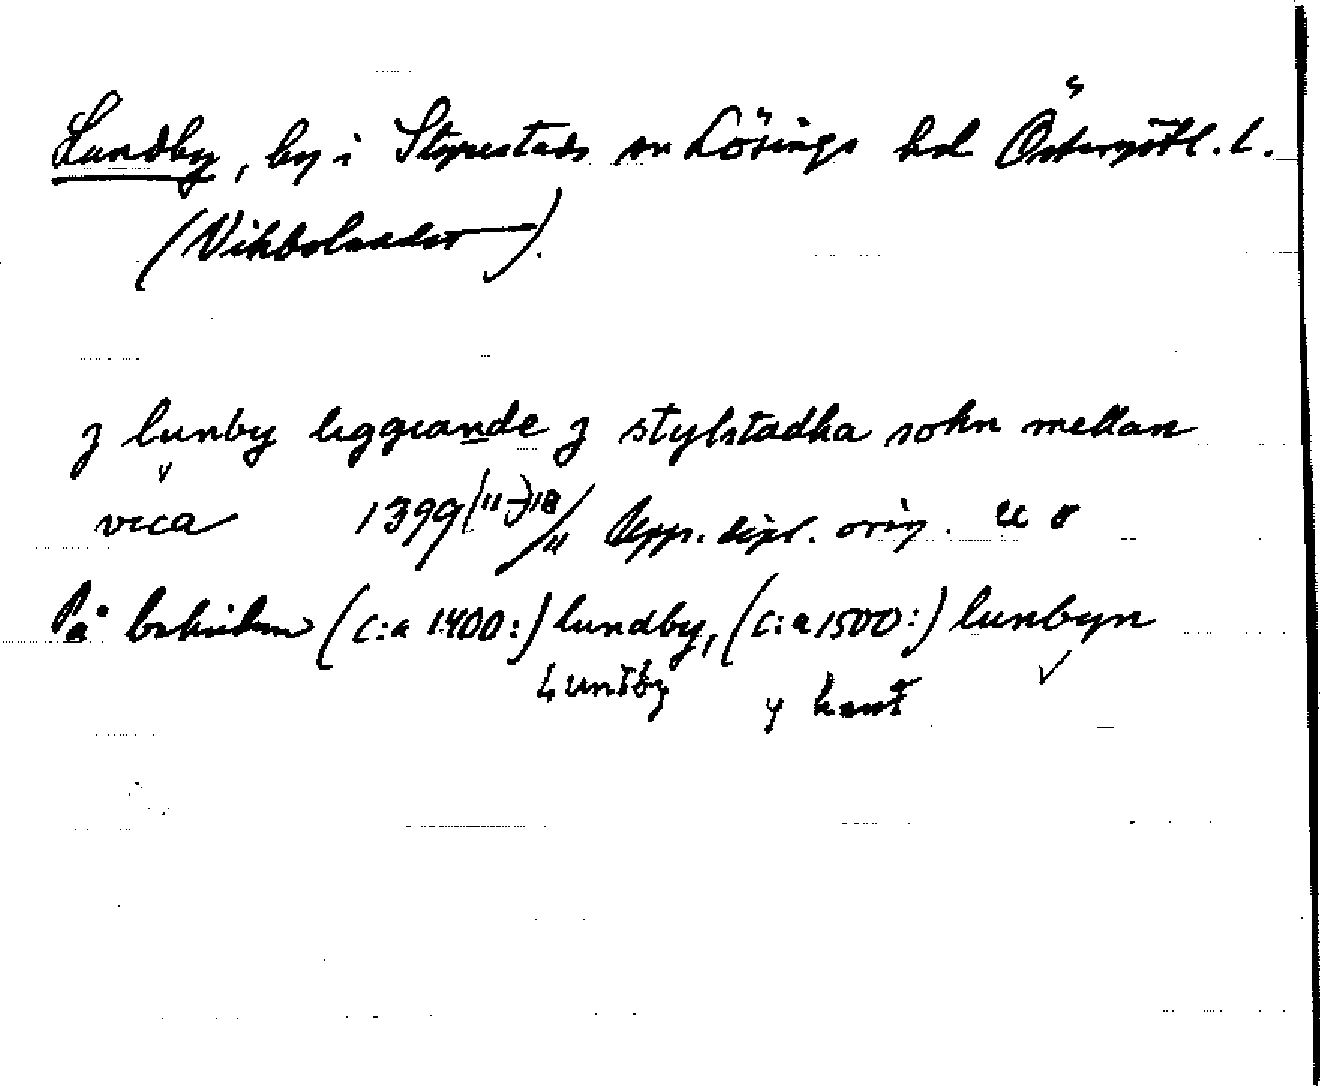 Lundby, by i Stegestads sn Lösings hd Östergötl. L.
(Vikbolandet).
j lunby liggiande j stylstadha sokn mellan
vica 1399 (11-)18/11 Upp. dipl. orig. U
På baksidan (c:a 1400:) lundby, (c:a 1500:) lunbyn
Lundby